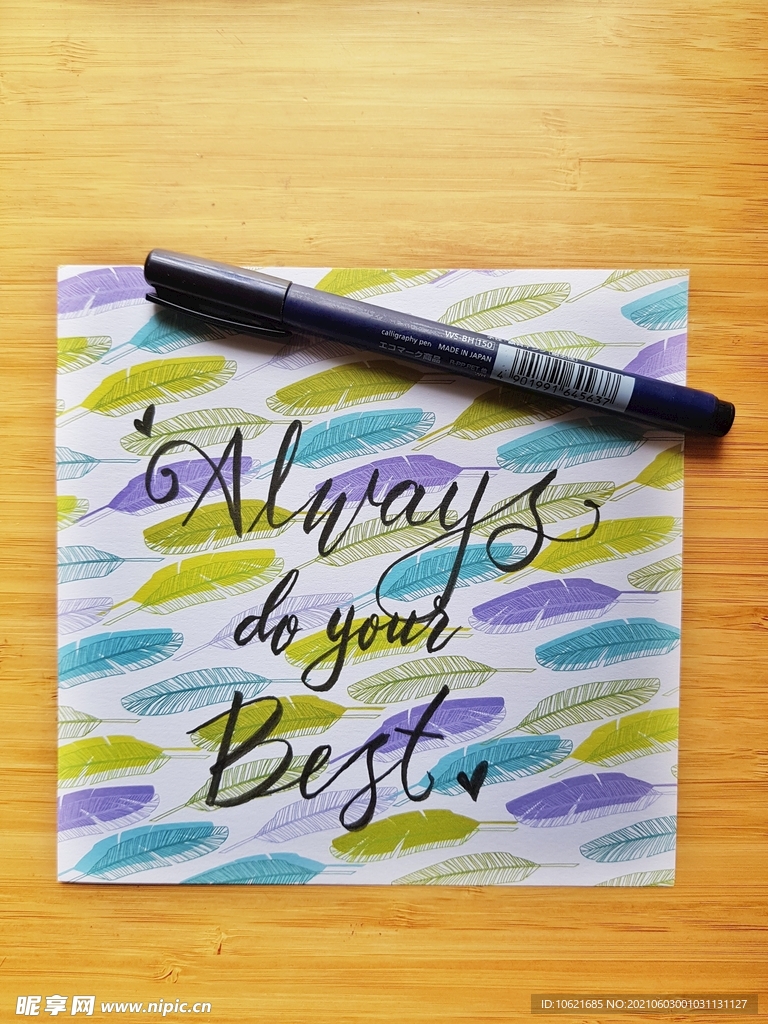 calligraphy pen
WS-BH(150)
MADE IN JAPAN
エコマーク商品
4 901991 645637
Always
do your
Best
昵享网 www.nipic.cn
ID:10621685 NO:20210603001031131127